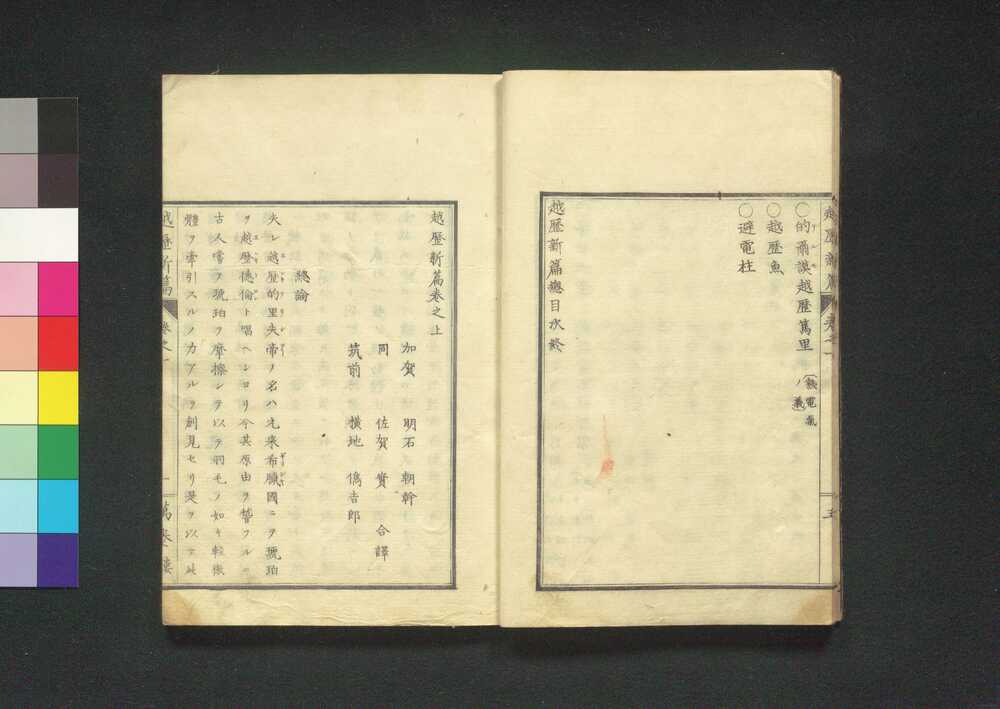 越歴新篇
○的爾謨越歴萬里
(熱電氣ノ義)
○越歴魚
○避電柱
越歴新篇總目次終
五
越歴新篇巻之上
加賀 明石 朝幹
同 佐賀 實 合譯
筑前 横地 僞吉郎
總論
夫レ越歴的里失帝ノ名ハ元来希臘國ニヲ琥珀
ヲ越歴徳倫ト唱ヘシヨリ今其原由ヲ
古人嘗テ琥珀ヲ摩擦シテ以テ羽毛ノ如キ軽微
體ヲ牽引スルノ力アルヲ創見セリ是ヲ以テ
越歴新篇
巻之一